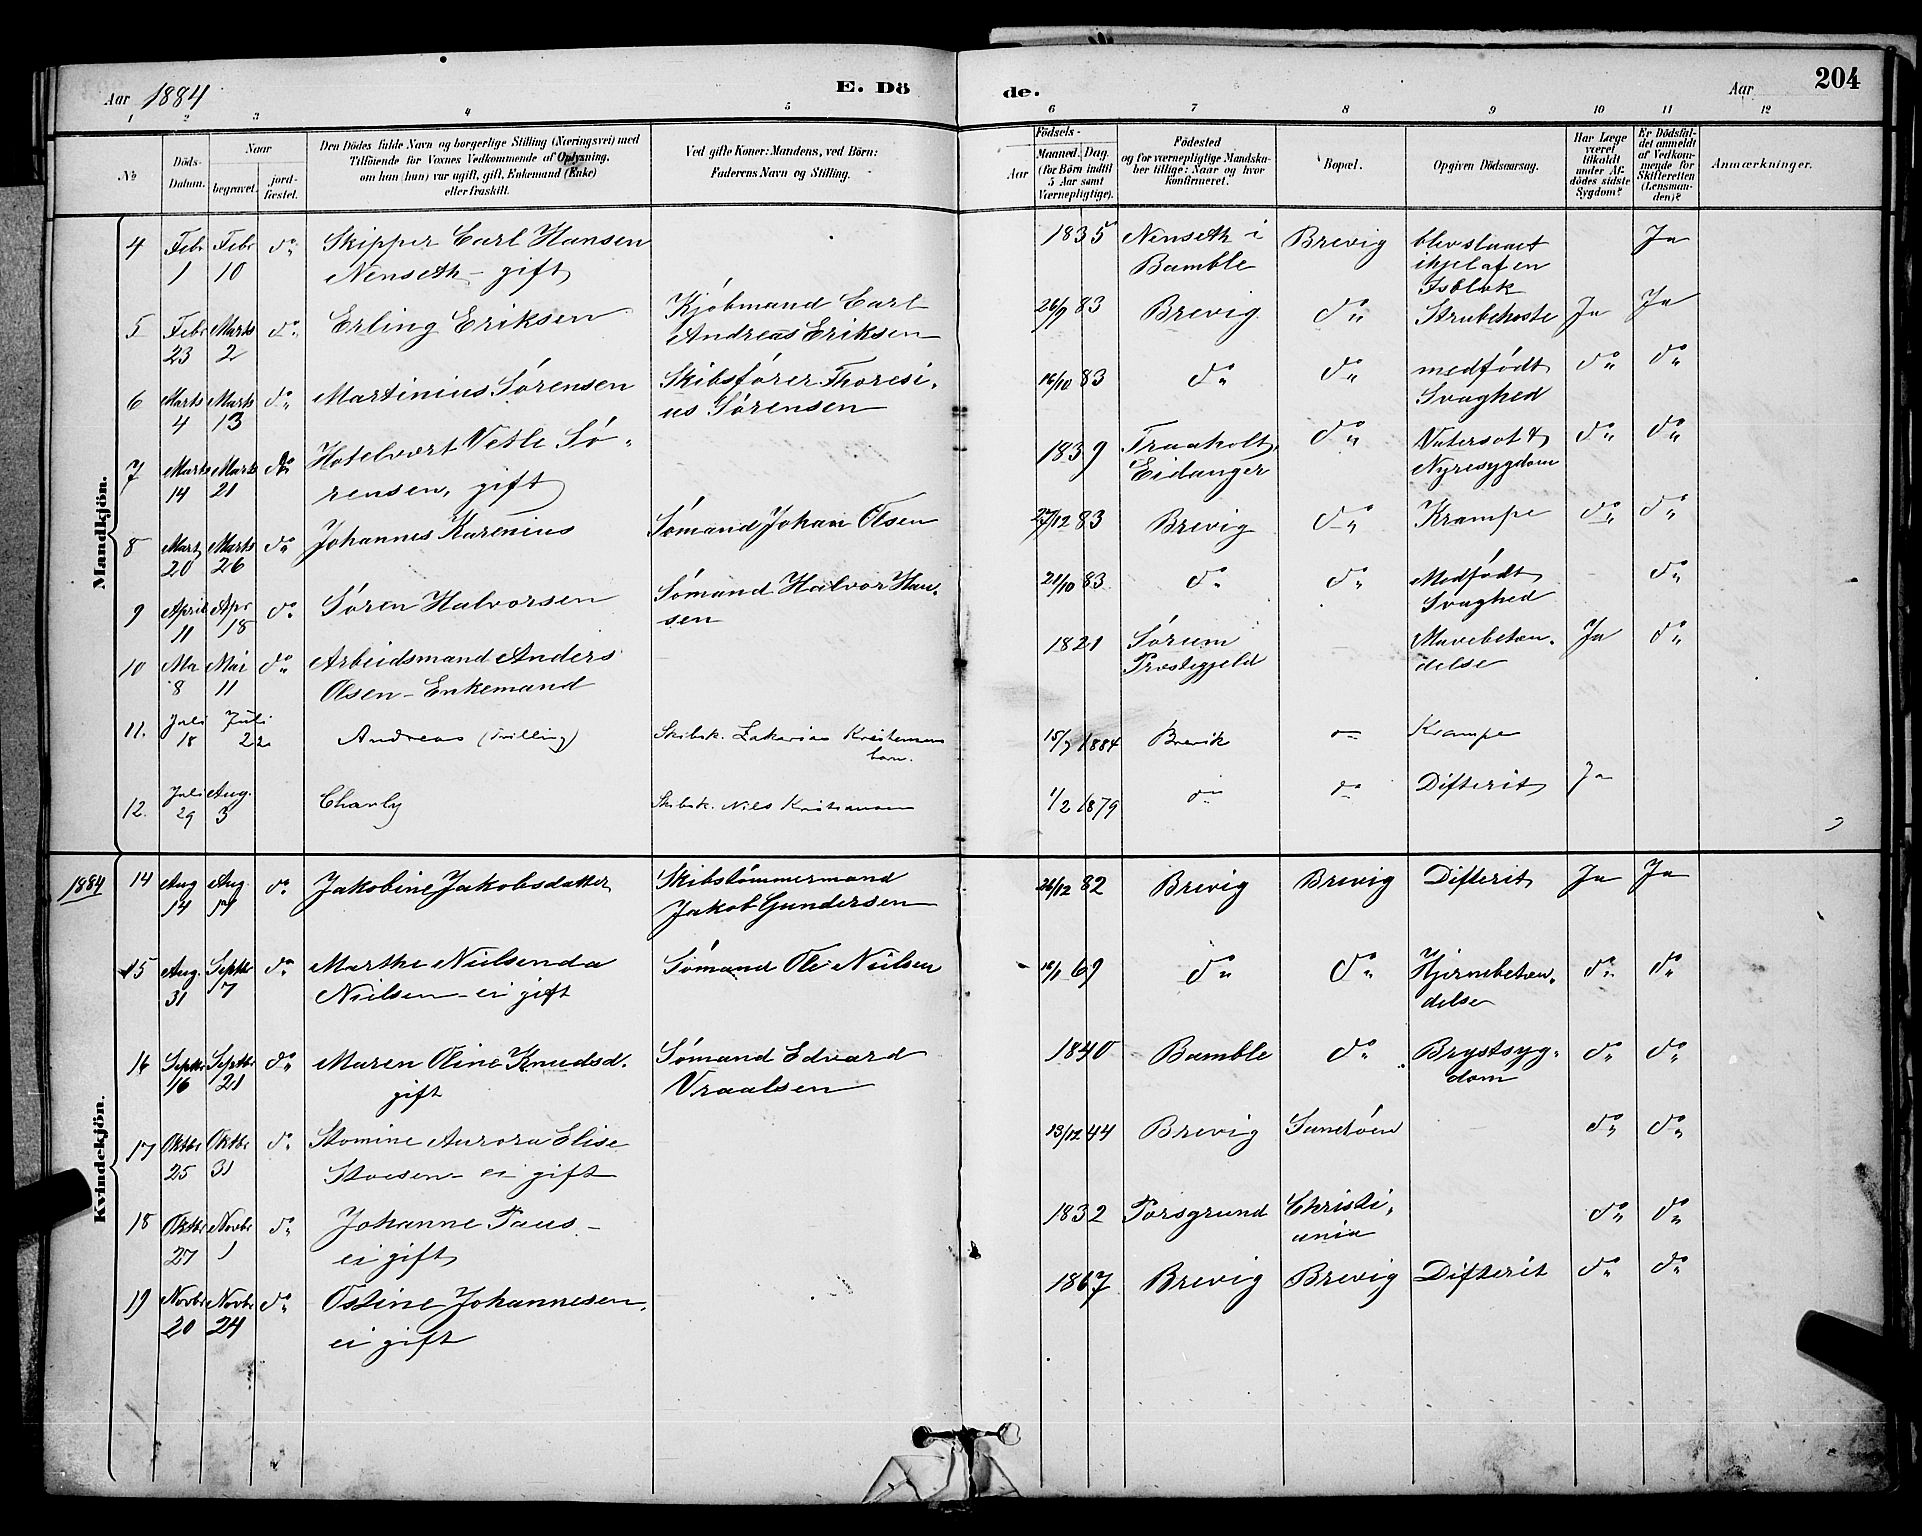 Aar 1884 E. Dö de. Aar 204
1 2 3 4 5 6 7 8 9 10 11 12
No
Döds-Datum.
Naar
begravet.
jord-fæstet.
Den Dödes fulde Navn og borgerlige Stilling (Næringsvei) med
Tilföiende for Voxnes Vedkommende af Oplysning,
om han (hun) var ugift, gift, Enkemand (Enke)
eller fraskilt.
Ved gifte Koner: Mandens, ved Börn:
Faderens Navn og Stilling.
Födsels-
Aar
Maaned. Dag.
(for Börn indtil
5 Aar samt
Værnepligtige).
Födested
og for værnepligtige Mandska-
ber tillige: Naar og hvor
konfirmeret.
Bopæl.
Opgiven Dödsaarsag.
Har Læge
været
tilkaldt
under Af-
dödes sidste
Sygdom?
Er Dödsfal-
det anmeldt
af Vedkom-
mende for
Skifteretten
(Lensman-
den)?
Anmærkninger.
Mandkjön.
4 Febr 1 Febr 10 do Skipper Carl Hansen 1835 Nenseth i Brevig blev slaaet Ja
Nenseth - gift Bamble ihjel af en
Isblok
5 Febr 23 Marts 2 do Erling Eriksen Kjøbmand Carl 26/9 83 Brevig do Strubehoste Ja Ja
Andreas Eriksen
6 Marts 4 Marts 13 do Martinius Sørensen Skibsfører Thoresi- 16/10 83 do do medfødt do do
us Sørensen Svaghed
7 Marts 14 Marts 21 do Hotelvert Vetle Sø- 1839 Traaholt, do Vatersot & do do
rensen, gift Eidanger Nyresygdom
8 Mart 20 Marts 26 do Johannes Karenius Sømand Johan Olsen 27/12 83 Brevig do Krampe do do
9 April 11 Apr 18 do Søren Halvorsen Sømand Halvor Han- 21/10 83 do do Medfødt - do
sen Svaghed
10 Ma 8 Mai 11 do Arbeidsmand Anders - 1821 Sørum - Mavebetæn- Ja do
Olsen - Enkemand Præstegjeld delse
11. Juli 18 Juli 22 Andreas (Tvilling) Skibsk. Zakarias Kristensens 15/7 1884 Brevik do Krampe
barn.
12. Juli 29 Aug. 3 Charly Skibsk. Nils Kristiansen 1/2 1879 do do Difterit Ja
Kvindekjön.
1884 14 Aug 14 Aug. 17 do Jakobine Jakobsdatter Skibstømmermand 26/12 82 Brevig Brevig Difterit Ja Ja
Jakob Gundersen
15 Aug. 31 Septbr 7 do Marthe Nielsenda Sømand Ole Nielsen 69 do do Hjernebetæn- do do
Nielsen - ei gift delse
16 Septbr 16 Septbr 21 do Maren Oline Knudsd. Sømand Edvard 1840 Bamble do Brystsyg- do do
gift Vraalsen dom
17 Oktbr 25 Oktbr 31 do Stomine Aurora Elise 13/12 44 Brevig Sundøen do do
Stoesen - ei gift
18 Oktbr 27 Novbr 1 do Johanne Paus - 1832 Porsgrund Christi- do do
ei gift ania
19 Novbr 20 Novbr 24 do Ostine Johannesen, 1867 Brevig Brevig Difterit do do
ei gift